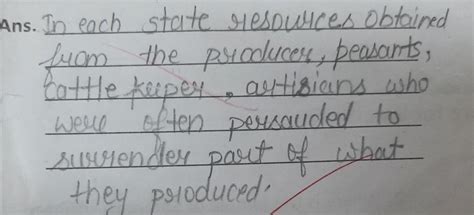 Ans. In each state resources obtained
from the producer, peasants,
cattle keeper, artisians who
were often persauded to
surrender part of what
they produced.